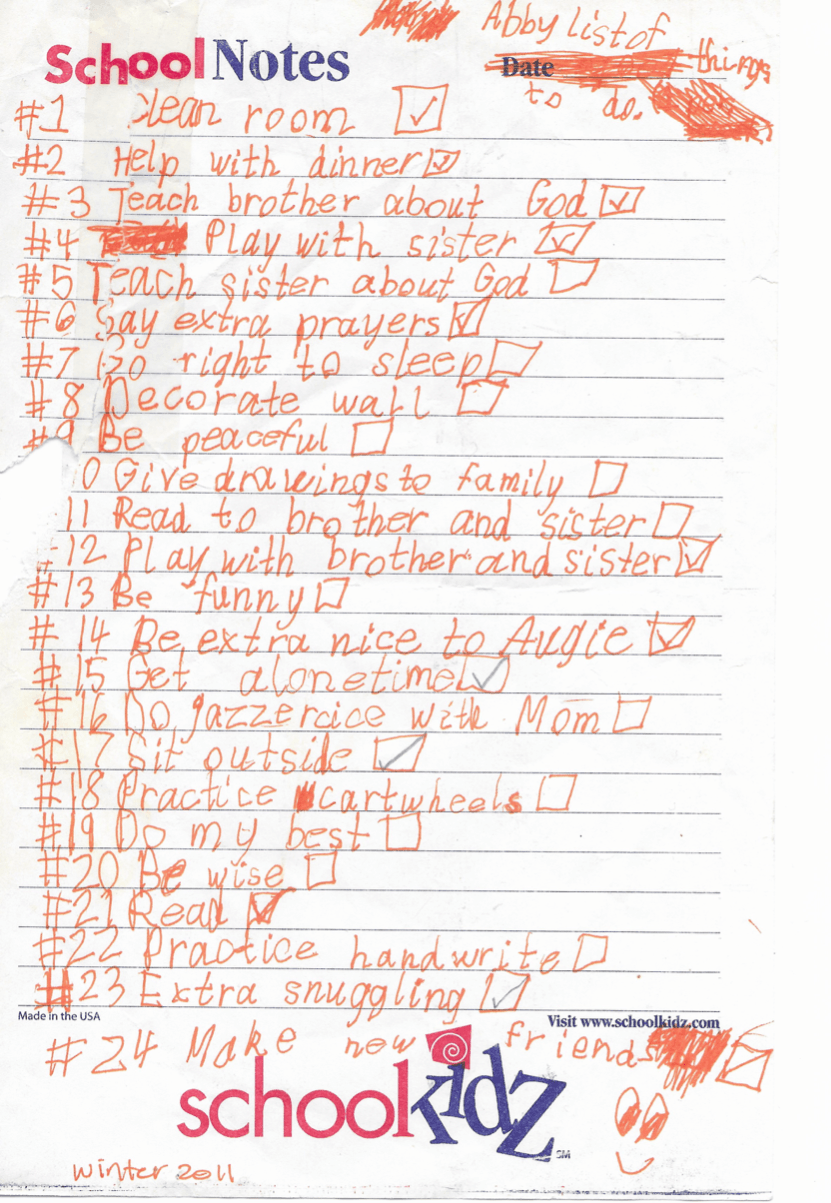 Abby list of
School Notes
Date things
to do.
#1 Clean room ☑
#2 Help with dinner ☑
#3 Teach brother about God ☑
#4 Play with sister ☑
#5 Teach sister about God ☐
#6 Say extra prayers ☑
#7 Go right to sleep ☐
#8 Decorate wall ☐
#9 Be peaceful ☐
0 Give drawings to family ☐
11 Read to brother and sister ☐
#12 Play with brother and sister ☑
#13 Be funny ☐
#14 Be extra nice to Augie ☑
#15 Get alone time ☑
#16 Do jazzercice with Mom ☐
#17 Sit outside ☑
#18 Practice cartwheels ☐
#19 Do my best ☐
#20 Be wise ☐
#21 Read ☑
#22 Practice handwrite ☐
#23 Extra snuggling ☑
Made in the USA
Visit www.schoolkidz.com
#24 Make new friends ☑
schoolkidz SM
winter 2011